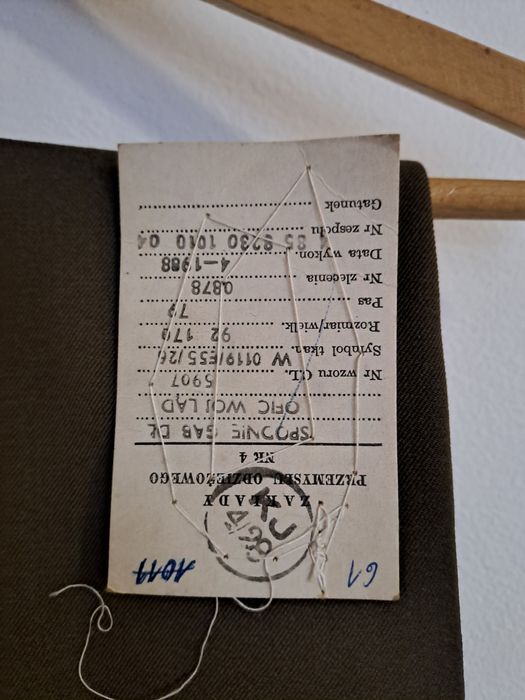 61 1011
KJ
4/206
ZAKŁADY
PRZEMYSŁU ODZIEŻOWEGO
NR 4
SPODNIE GAB DŁ
OFIC WOJ LĄD
Nr wzoru CL. 5907
Symbol tkan. W 0119/E55/26
Rozmiar/wielk. 92 170
Pas 79
Nr zlecenia 0878
Data wykon. 4-1988
Nr zespołu 85 8230 1010 04
Gatunek